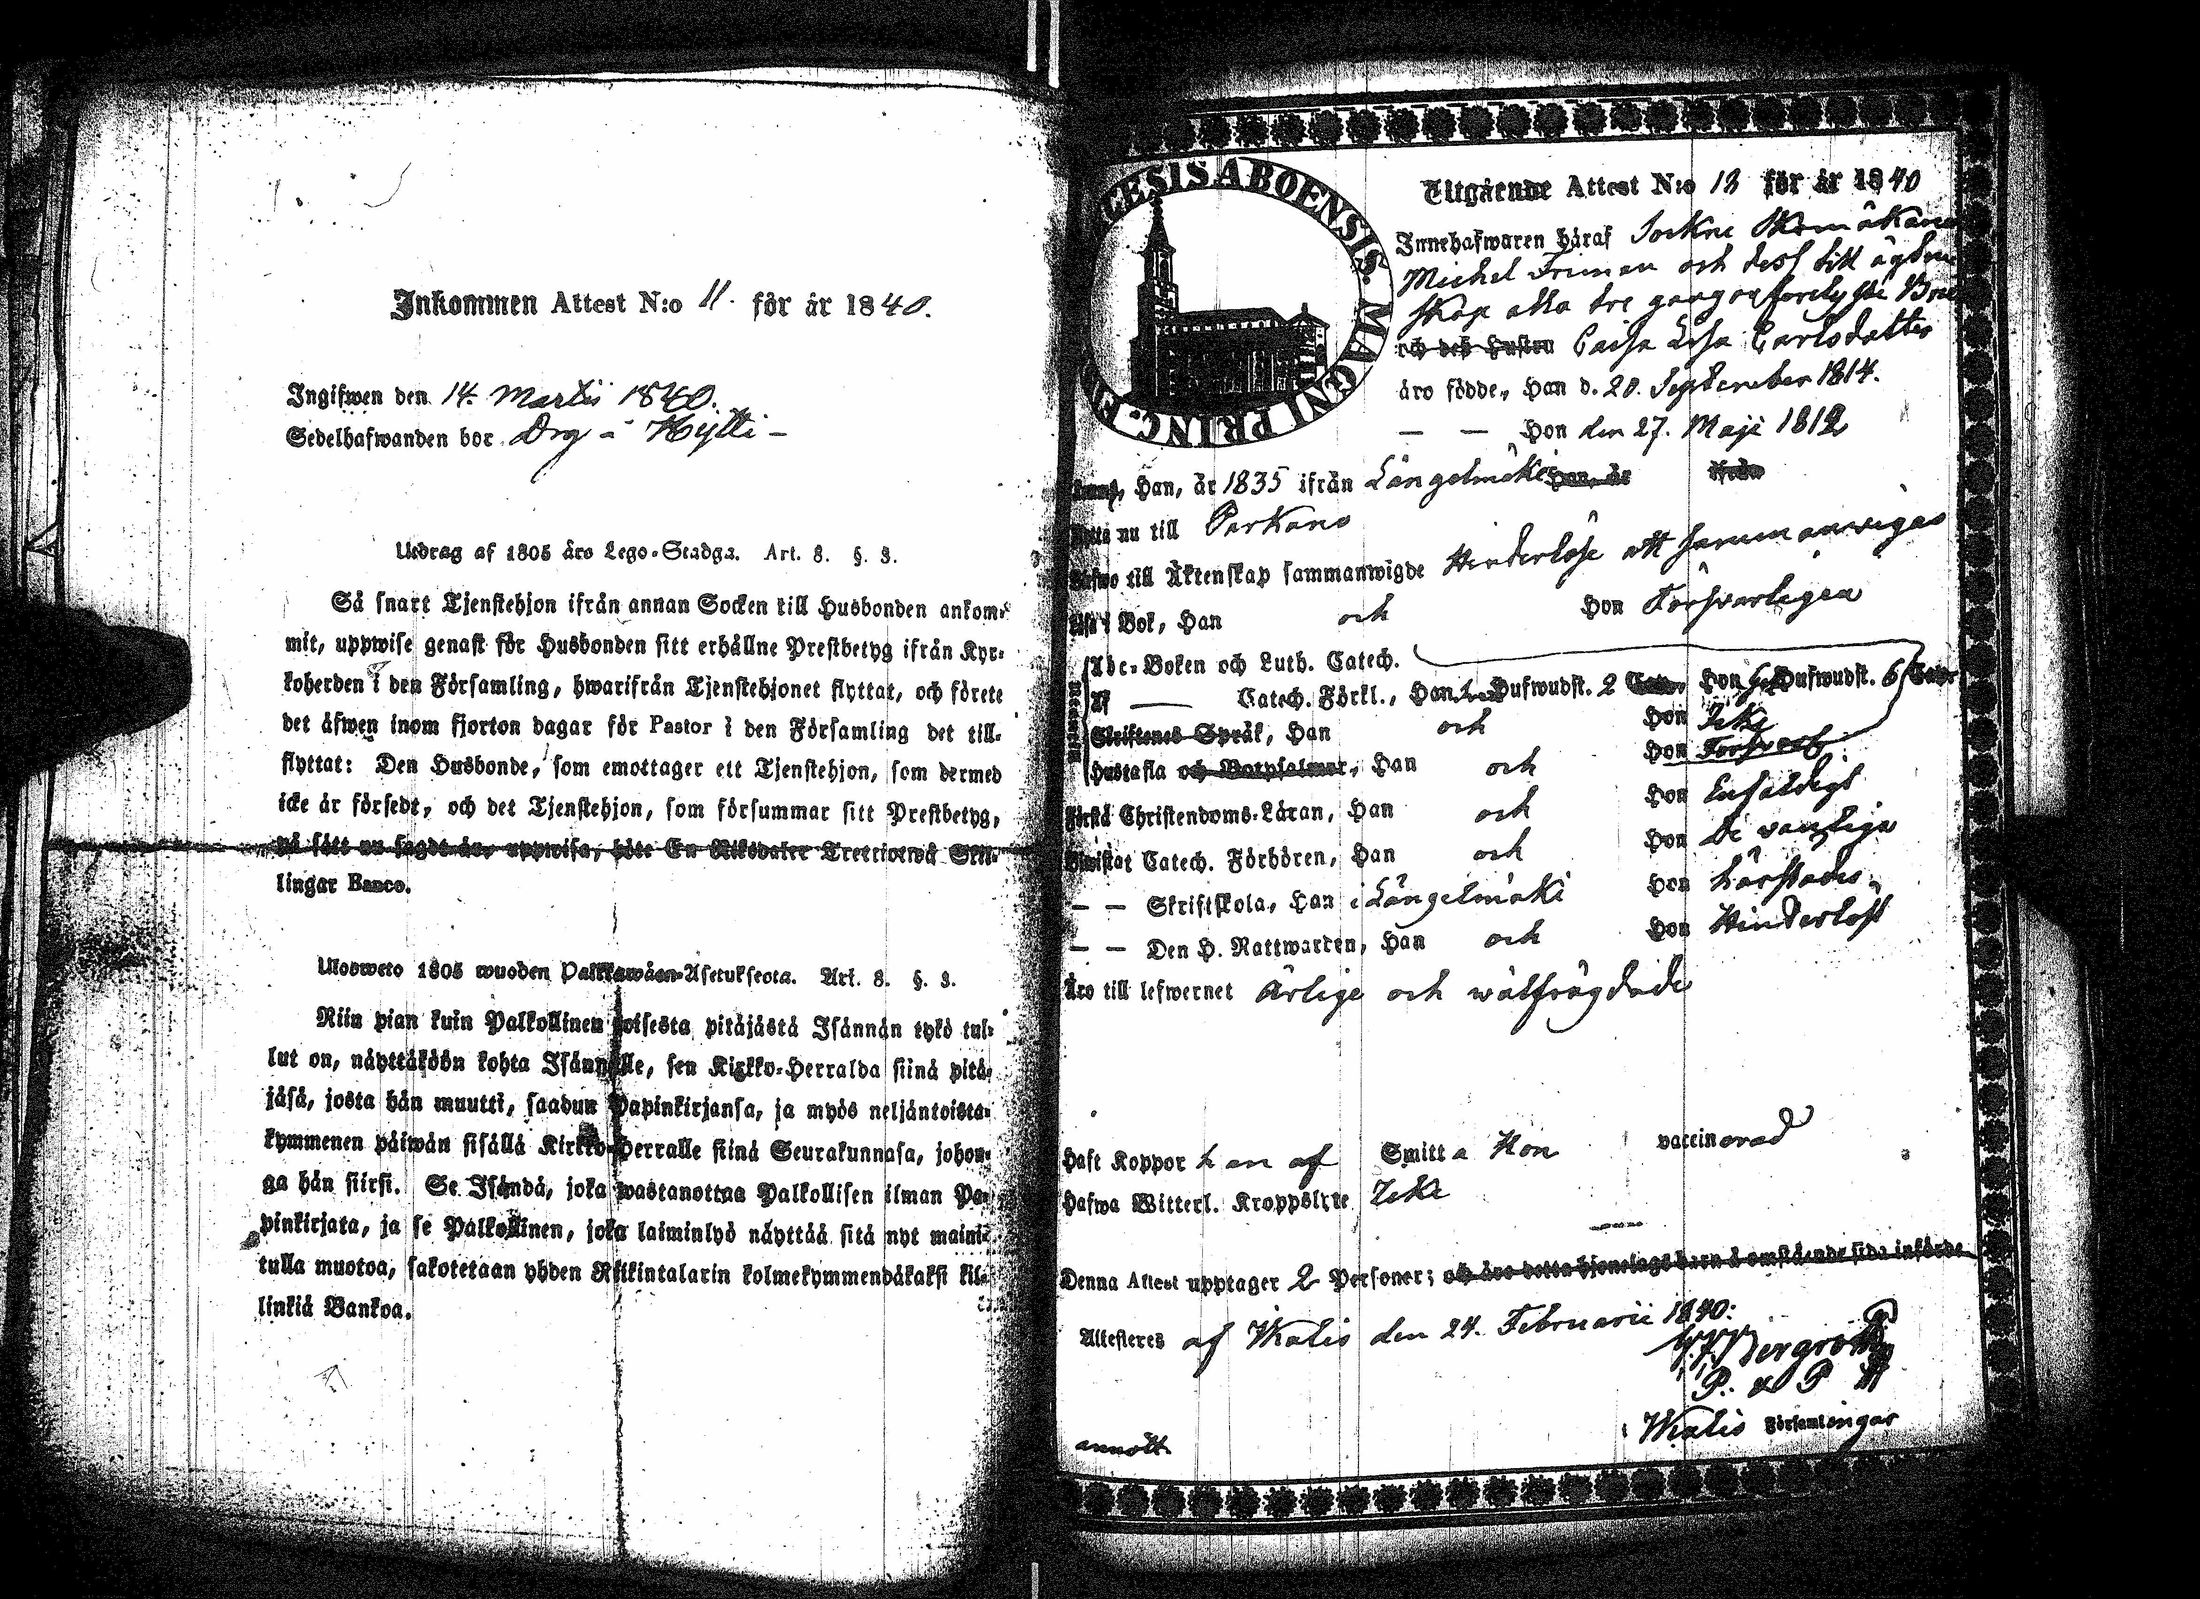 Inkommen Attest N:o 11. för år 1840.
Ingifwen den 14. Martii 1840.
Sedelhafwanden bor Drg â Hytti –
Utdrag af 1805 års Lego-Stadga. Art. 8. §. 3.
Så snart Tjenstehjon ifrån annan Socken till Husbonden ankom-
mit, uppwise genast för Husbonden sitt erhållne Prestbetyg ifrån Kyr-
koherden i den Församling, hwarifrån Tjenstehjonet flyttat, och förete
det äfwen inom fjorton dagar för Pastor i den Församling det till-
flyttat: Den Husbonde, som emottager ett Tjenstehjon, som dermed
icke är försedt, och det Tjenstehjon, som försummar sitt Prestbetyg,
på sätt nu sagdt är, uppwisa, böte En Riksdaler Trettiotwå Skil-
lingar Banco.
Ulosweto 1805 wuoden Palkkawäen-Asetuksesta. Art. 8. §. 3.
Niin pian kuin Palkollinen toisesta pitäjästä Isännän tykö tul-
lut on, näyttäköön kohta Isännälle, sen Kirkko-Herralda siinä pitä-
jäsä, josta hän muutti, saadun Papinkirjansa, ja myös neljäntoista-
kymmenen päiwän sisällä Kirkko-Herralle siinä Seurakunnasa, johon-
ga hän siirsi. Se Isändä, joka wastanottaa Palkollisen ilman Pa-
pinkirjata, ja se Palkollinen, joka laiminlyö näyttää sitä nyt maini-
tulla muotoa, sakotetaan yhden Riikintalarin kolmekymmendäkaksi kil-
linkiä Bankoa.
CESIS ABOENSIS. MAGNI PRINC. F
Utgående Attest N:o 12 för år 1840
Innehafwaren häraf Sockne Skomakaren
Michel Friman och dess till ägten
skap alla tre gångor forelyste Brud
och deß Hustru Caisa Lisa Carlsdotter
äro födde, Han d. 20. September 1814.
— — Hon den 27. Maji 1812
Han, år 1835 ifrån Längelmäki Hon, år ifrån
nu till Parkano
till Äktenskap sammanwigde Hinderlöse att sammanwigas
i Bok, Han och Hon Försvarligen
Abc-Boken och Luth. Catech.
Af — Catech. Förkl., Han Hufwudst. 2 Hon Hufwudst. 6
Skriftenes Språk, Han och Hon Icke
Hustafla och Botpsalmer, Han och Hon Forsvarl.
Förstå Christendoms-Läran, Han och Hon Enfaldigt
Bewistat Catech. Förhören, Han och Hon De vanliga
— — Skriftskola, Han i Längelmäki Hon härstädes
— — Den H. Nattwarden, Han och Hon Hinderlöst
Äro till lefwernet Ärlige och wälfrägdade
Haft Koppor han af Smitta Hon vaccinerad
Hafwa Witterl. Kroppslyte Icke
Denna Attest upptager 2 Personer; och äro detta hjonelags barn å omstående sida införde.
Attesteres af Wiatis den 24. Februarii 1840.
Bergroth
P. & P
i Wiatis Församlingar
annott.